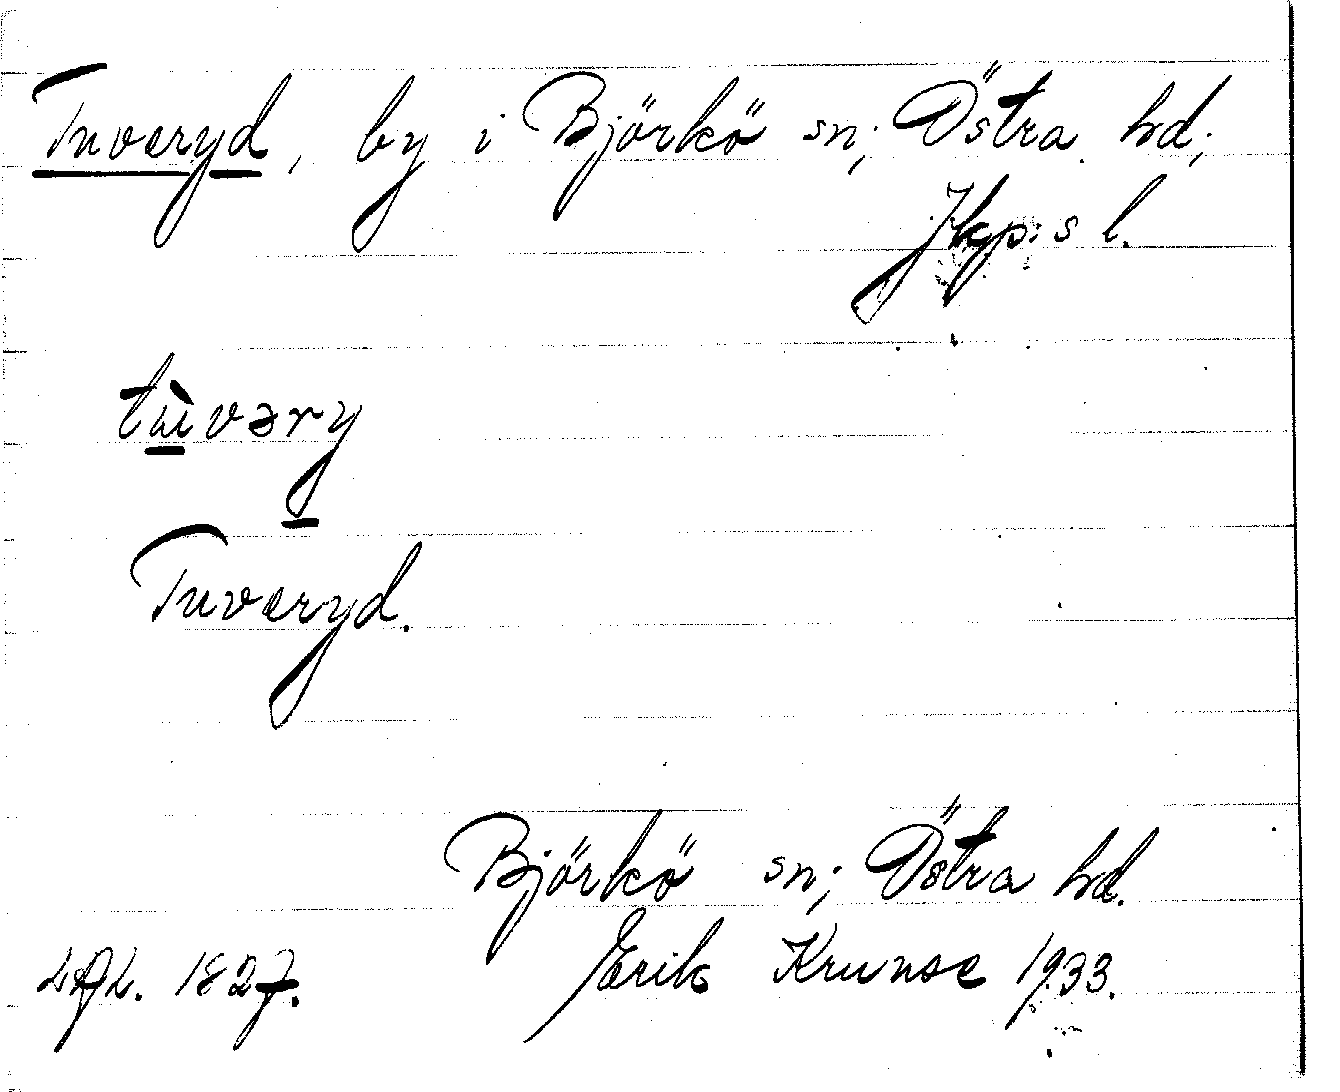 Tuveryd, by i Björkö sn; Östra hd;
Jkp:s l.
tu̠̇̀vəry̠
Tuveryd.
Björkö sn; Östra hd.
1827. Erik Krunse 1933.